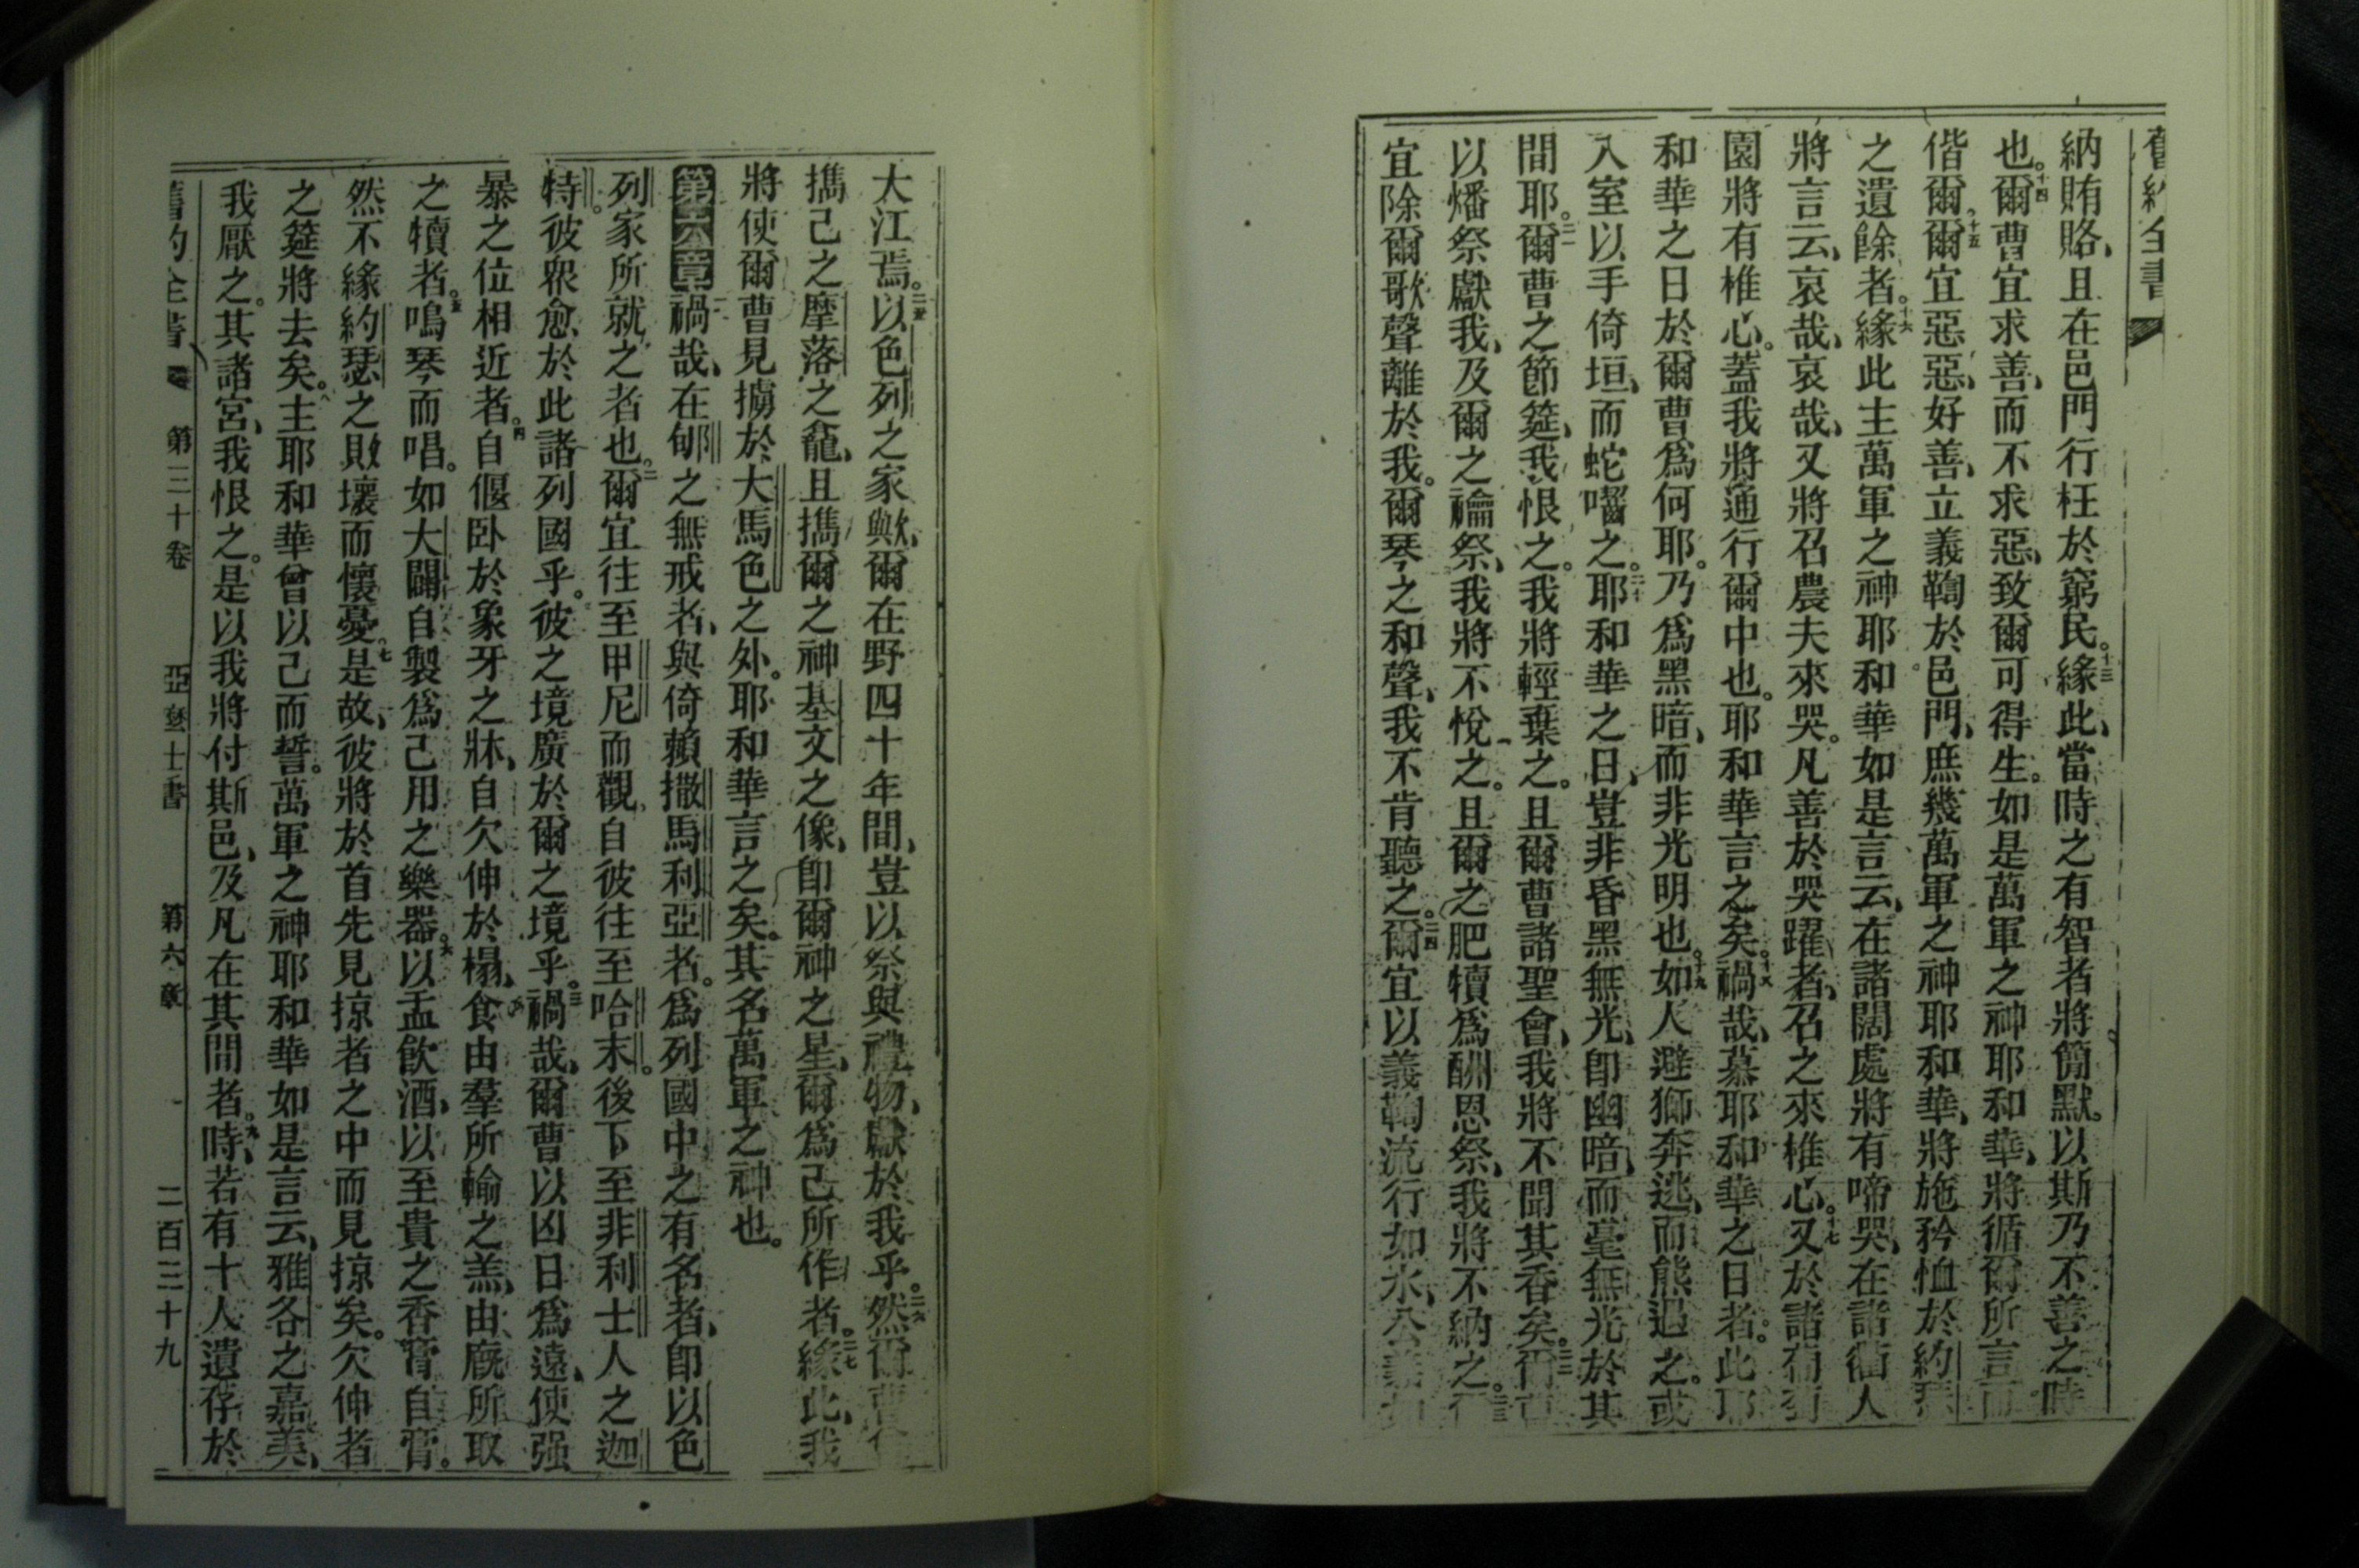 舊約全書
納賄賂、且在邑門行枉於窮民。十三緣此、當時之有智者將簡默。以斯乃不善之時
也。十四爾曹宜求善、而不求惡、致爾可得生。如是萬軍之神耶和華、將循爾所言而
偕爾。十五爾宜惡惡、好善、立義鞫於邑門、庶幾萬軍之神耶和華、將施矜恤於約瑟
之遺餘者。十六緣此主萬軍之神耶和華如是言云、在諸闊處將有啼哭、在諸衢人
將言云、哀哉、哀哉、又將召農夫來哭。凡善於哭躍者、召之來椎心。十七又於諸葡萄
園將有椎心。蓋我將通行爾中也。耶和華言之矣。十八禍哉、慕耶和華之日者。此耶
和華之日於爾曹爲何耶。乃爲黑暗、而非光明也。十九如人避獅奔逃、而熊遇之。或
入室以手倚垣、而蛇囓之。二十耶和華之日、豈非昏黑無光、卽幽暗、而毫無光於其
間耶。二一爾曹之節筵、我恨之。我將輕棄之。且爾曹諸聖會、我將不聞其香矣。二二爾曹
以燔祭獻我、及爾之禴祭、我將不悅之。且爾之肥犢爲酬恩祭、我將不納之。二三
宜除爾歌聲離於我。爾琴之和聲、我不肯聽之。二四爾宜以義鞫流行如水、公義如
大江焉。二五以色列之家歟、爾在野四十年間、豈以祭與禮物、獻於我乎。二六然爾曹
攜己之摩落之龕、且攜爾之神基文之像、卽爾神之星、爾爲己所作者。二七緣此、我
將使爾曹見擄於大馬色之外。耶和華言之矣。其名萬軍之神也。
第六章禍哉、在郇之無戒者、與倚賴撒馬利亞者。爲列國中之有名者、卽以色
列家所就之者也。二爾宜往至甲尼而觀、自彼往至哈末。後下至非利士人之迦
特。彼衆愈於此諸列國乎。彼之境廣於爾之境乎。三禍哉、爾曹以凶日爲遠、使强
暴之位相近者。四自偃卧於象牙之牀、自欠伸於榻、食由羣所輸之羔、由廐所取
之犢者。五鳴琴而唱。如大闢自製爲己用之樂器。六以盂飮酒、以至貴之香膏自膏。
然不緣約瑟之敗壞而懷憂。七是故、彼將於首先見掠者之中而見掠矣。欠伸者
之筵將去矣。八主耶和華曾以己而誓。萬軍之神耶和華如是言云、雅各之嘉美、
我厭之。其諸宮、我恨之。是以我將付斯邑、及凡在其間者。九時、若有十人遺存於
舊約全書 第三十卷 亞麽士書 第六章 二百三十九